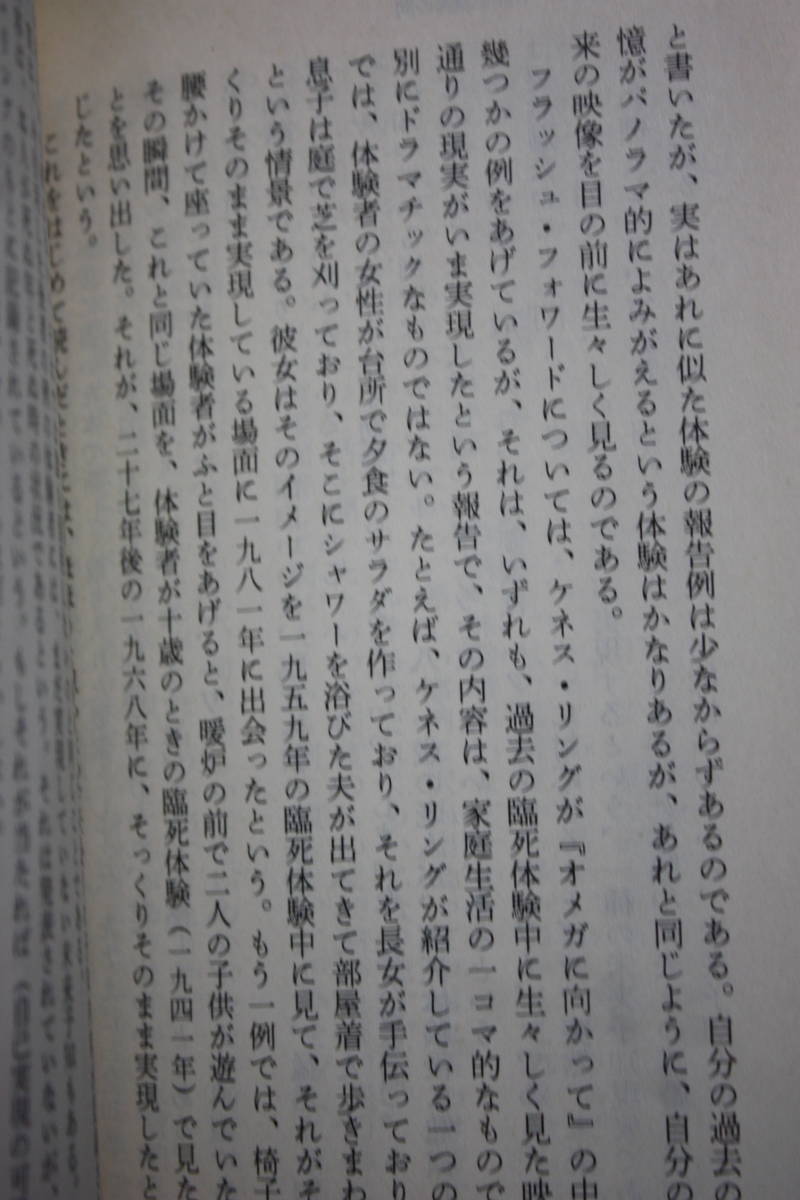 と書いたが、実はあれに似た体験の報告例は少なからずあるのである。自分の過去の
憶がパノラマ的によみがえるという体験はかなりあるが、あれと同じように、自分の
来の映像を目の前に生々しく見るのである。
フラッシュ・フォワードについては、ケネス・リングが『オメガに向かって』の中
幾つかの例をあげているが、それは、いずれも、過去の臨死体験中に生々しく見た映
通りの現実がいま実現したという報告で、その内容は、家庭生活の一コマ的なもので
別にドラマチックなものではない。たとえば、ケネス・リングが紹介している一つの
では、体験者の女性が台所で夕食のサラダを作っており、それを長女が手伝っており
息子は庭で芝を刈っており、そこにシャワーを浴びた夫が出てきて部屋着で歩きまわ
という情景である。彼女はそのイメージを一九五九年の臨死体験中に見て、それがそ
くりそのまま実現している場面に一九八一年に出会ったという。もう一例では、椅子
腰かけて座っていた体験者がふと目をあげると、暖炉の前で二人の子供が遊んでいた
その瞬間、これと同じ場面を、体験者が十歳のときの臨死体験（一九四一年）で見た
とを思い出した。それが、二十七年後の一九六八年に、そっくりそのまま実現したと
じたという。
これをはじめて読んだときには、